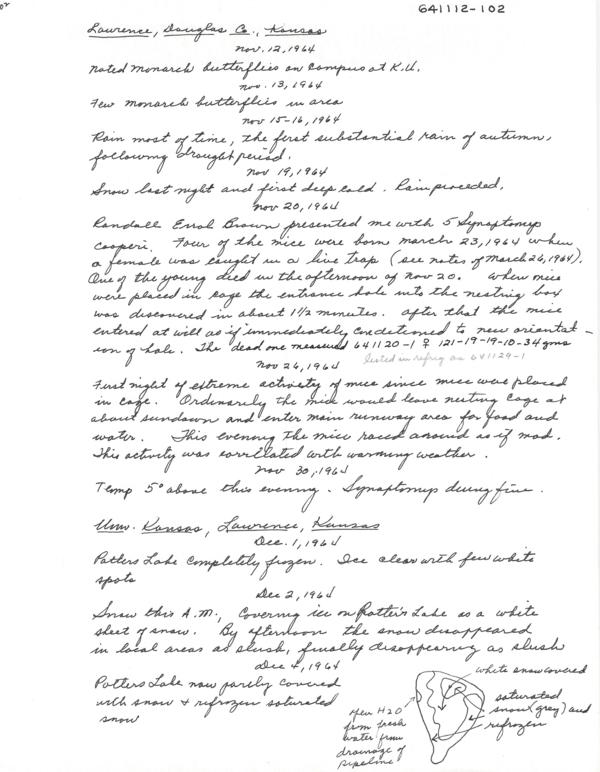 02
641112-102
Lawrence, Douglas Co., Kansas
Nov. 12, 1964
Noted monarch butterflies on campus at K.U.
Nov. 13, 1964
Few monarch butterflies in area
Nov 15-16, 1964
Rain most of time, the first substantial rain of autumn,
following drought period.
Nov 19, 1964
Snow last night and first deep cold. Rain preceded.
Nov 20, 1964
Randall Errol Brown presented me with 5 Synaptomys
cooperi. Four of the mice were born March 23, 1964 when
a female was caught in a live trap (see notes of March 26, 1964).
One of the young died in the afternoon of Nov 20. When mice
were placed in cage the entrance hole into the nesting box
was discovered in about 1 1/2 minutes. After that the mice
entered at will as if immediately condetioned to new orientat-
ion of hole. The dead one measured 641120-1 ♀ 121-19-19-10-34 gms
listed in refrig as 641129-1
Nov 26, 1964
First night of extreme activity of mice since mice was placed
in cage. Ordinarily the mice would leave nesting cage at
about sundown and enter main runway area for food and
water. This evening the mice raced around as if mad.
This activity was correlated with warming weather.
Nov 30, 1964
Temp 5° above this evening. Synaptomys doing fine.
Univ. Kansas, Lawrence, Kansas
Dec. 1, 1964
Potters Lake completely frozen. Ice clear with few white
spots
Dec 2, 1964
Snow this A.M., covering ice on Potter's Lake as a white
sheet of snow. By afternoon the snow disappeared
in local areas as slush, finally disappearing as slush
Dec 4, 1964
Potters Lake now partly covered
with snow & refrozen saturated
snow
white snow covered
saturated
snow (grey) and
refrozen
open H2O
from fresh
water from
drainage of
pipeline